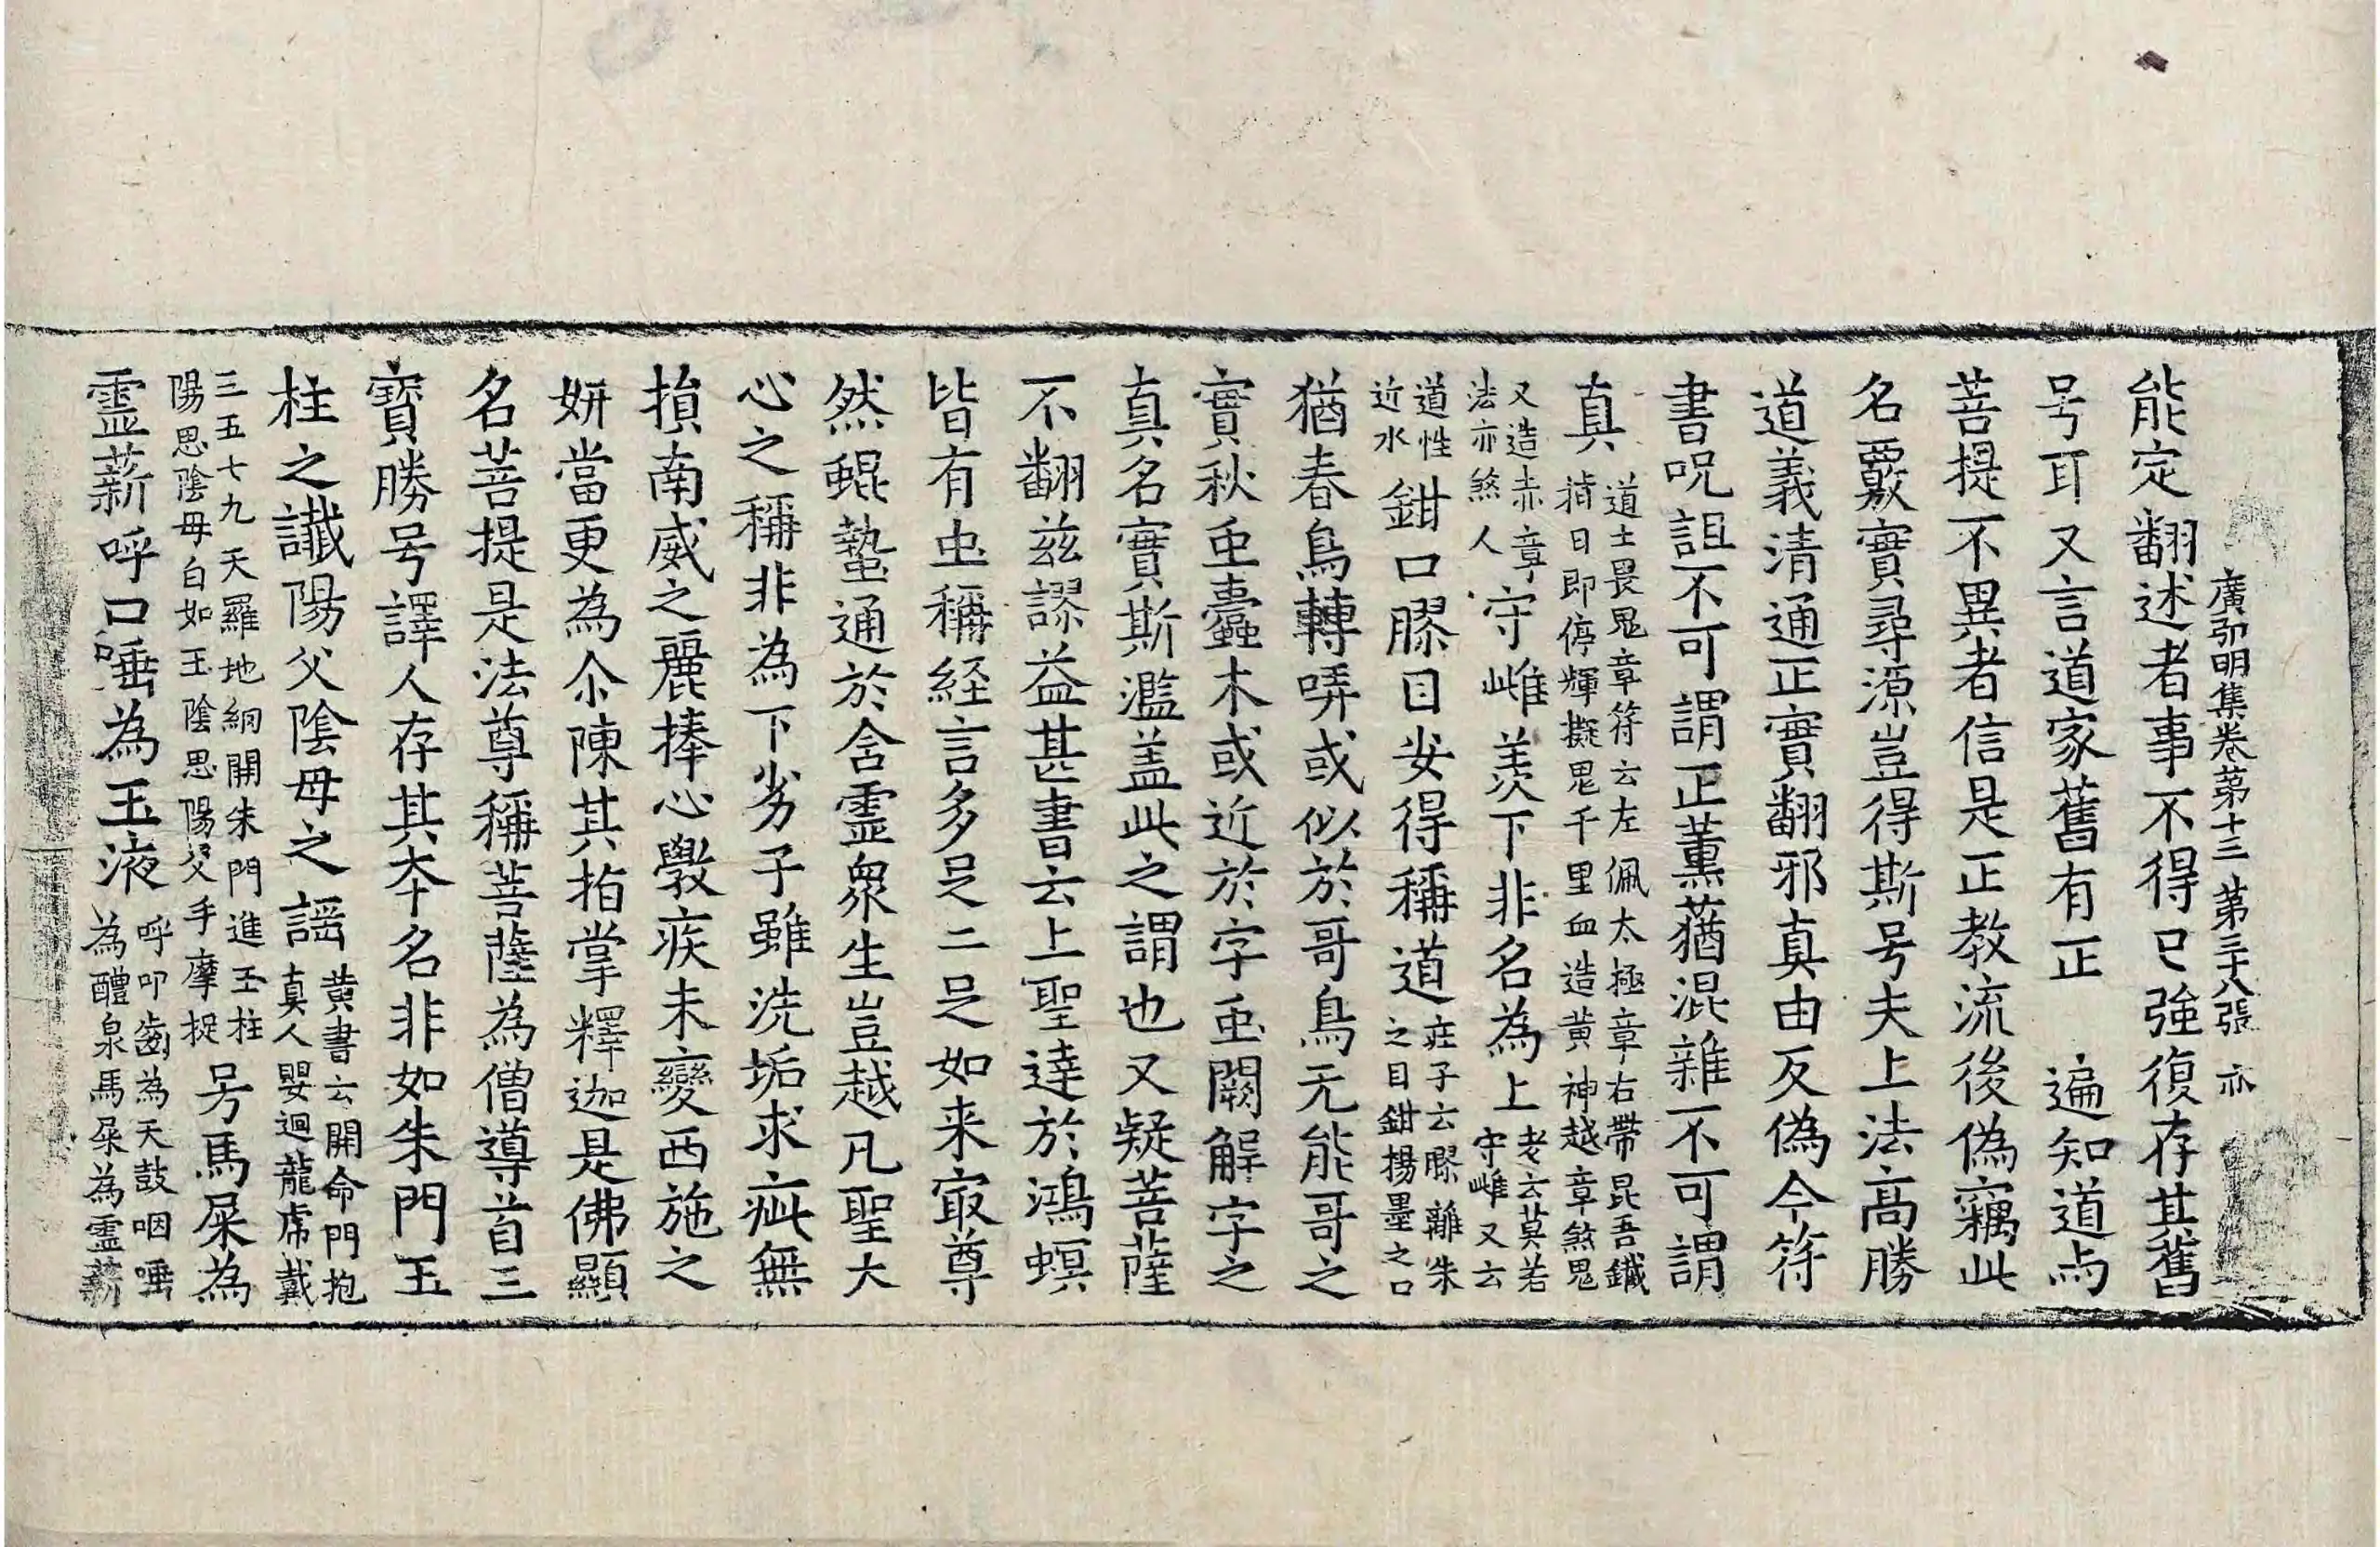 廣弘明集卷第十三 第三十八張 亦
能定翻述者事不得已強復存其舊
号耳又言道家舊有正 遍知道与
菩提不異者信是正教流後偽竊此
名覈實尋源豈得斯号夫上法高勝
道義清通正實翻邪真由反偽今符
書呪詛不可謂正薰蕕混雜不可謂
真 道士畏鬼章符云左佩太極章右帶昆吾鐵
指日即停輝擬鬼千里血造黃神越章煞鬼
又造赤章
法亦煞人 守雌羨下非名為上 老云莫若
守雌又云
道性
近水 鉗口膠目安得稱道 莊子云膠離朱
之目鉗楊墨之口
猶春鳥轉哢或似於哥鳥无能哥之
實秋虫蠹木或近於字虫闕解字之
真名實斯濫盖此之謂也又疑菩薩
不翻兹謬益甚書云上聖達於鴻螟
皆有虫稱経言多足二足如来冣尊
然蜫蟄通於含靈衆生豈越凡聖大
心之稱非為下劣子雖洗垢求疵無
損南威之麗捧心斆疾未變西施之
妍當更為尒陳其指掌釋迦是佛顯
名菩提是法尊稱菩薩為僧導首三
寳勝号譯人存其夲名非如朱門玉
柱之讖陽父陰母之謡 黄書云開命門抱
真人嬰迴龍席戴
三五七九天羅地網開朱門進玉柱
陽思陰母白如玉陰思陽父手摩捉 号馬屎為
靈薪呼口唾為玉液 呼叩齒為天鼓咽唾
為醴泉馬屎為靈薪